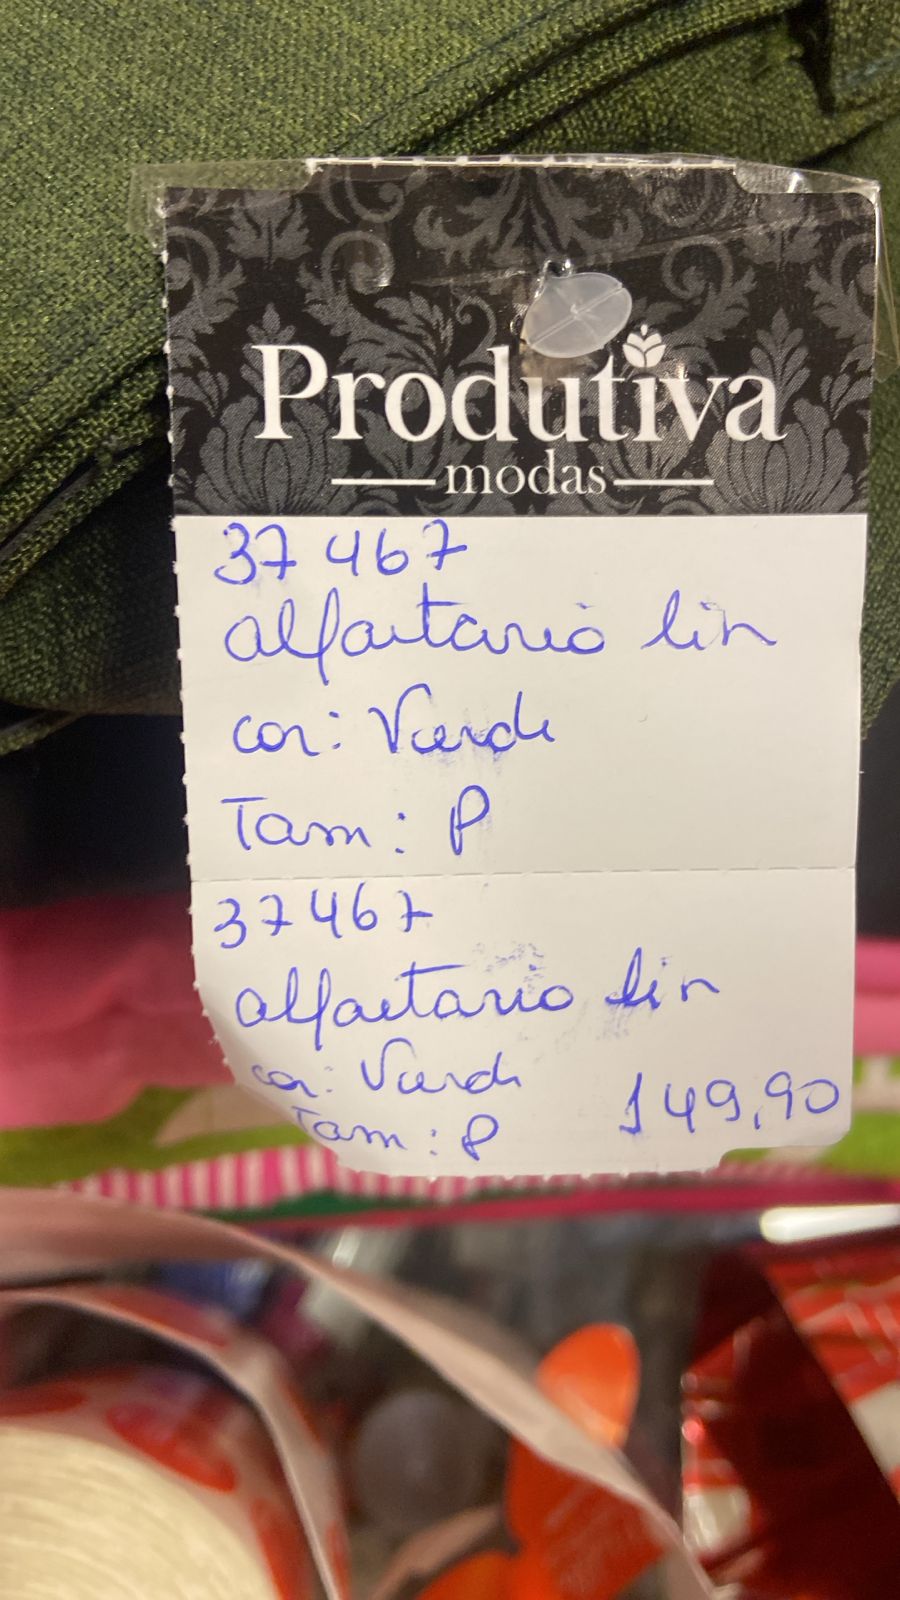 Produtiva
modas
37467
alfaetario lin
cor: Verde
Tam: P
37467
alfaetario lin
cor: Verde
Tam: P 149,90